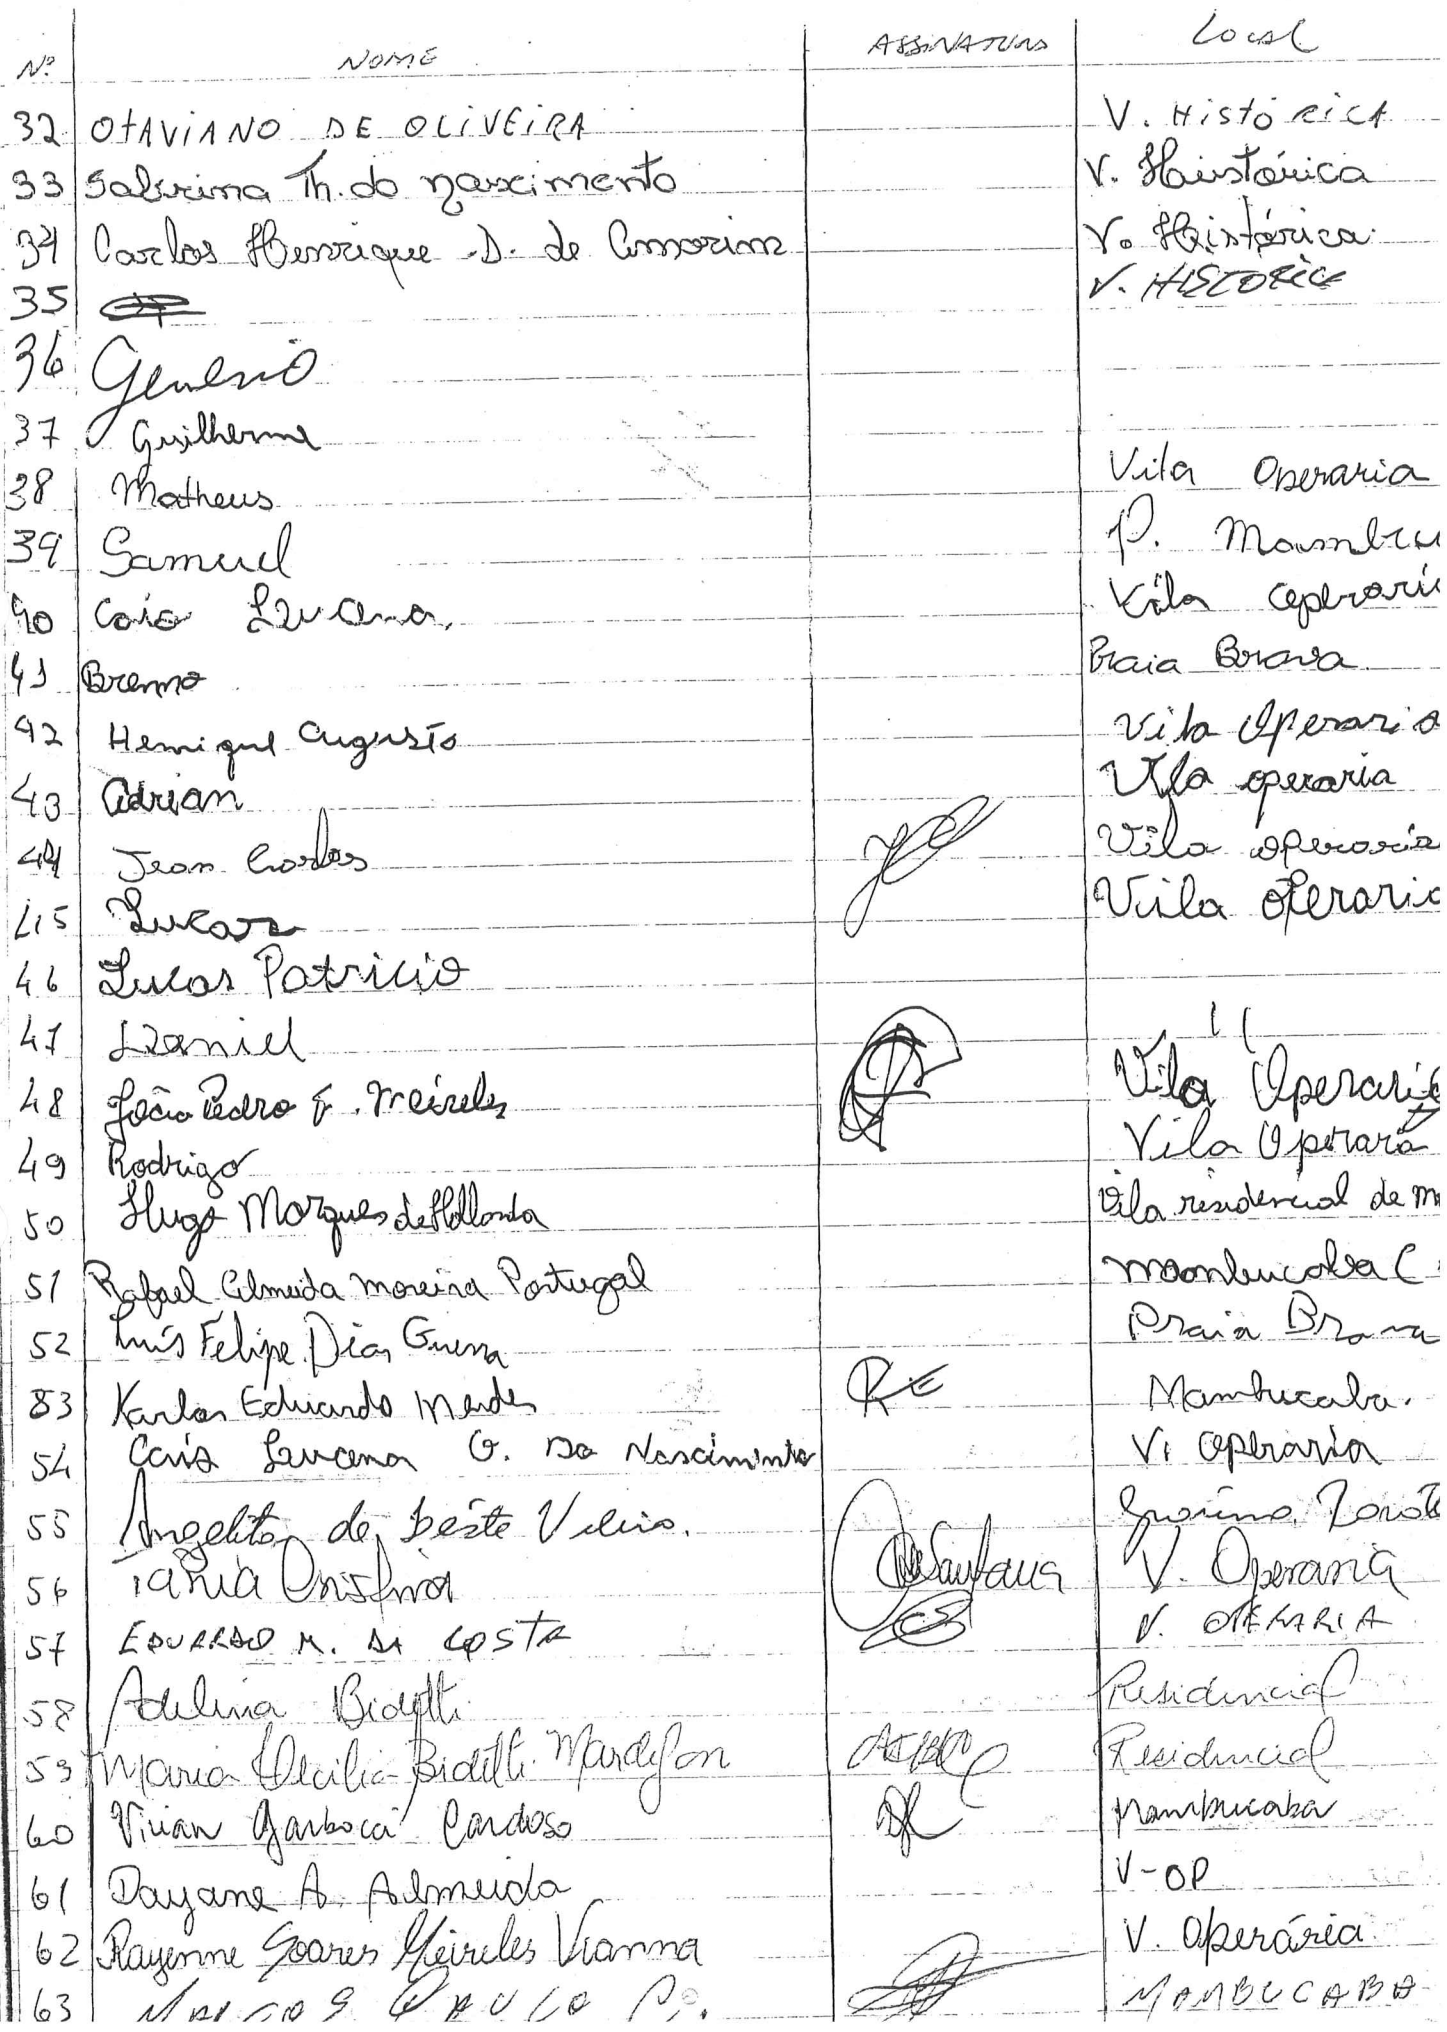 Nº NOME ASSINATURA Local
32 OTAVIANO DE OLIVEIRA V. HistóRICA
33 Sabrina Th. do nascimento V. Haistórica
34 Carlos Henrique D. de Amorim V. Histórica
35 V. HISTORICA
36 Genesio
37 Guilherme
38 Matheus Vila Operaria
39 Samuel P. Mambu
40 Caio Lucena Vila operari
41 Brenno Praia Brava
42 Henrique Augusto Vila Operaria
43 Adrian Vila operaria
44 Jean Carlos Vila operaria
45 Lucas Vila operaria
46 Lucas Patricio
47 Daniel 11
48 João Pedro F. Meireles Vila Operaria
49 Rodrigo Vila Operara
50 Hugo Marques de Hollanda Vila residencial de M
51 Rafael Almeida Moreira Portugal Mambucaba (
52 Luís Felipe Dias Guerra Praia Brava
53 Karlos Eduardo Mendes KE Mambucaba.
54 Caio Lucena G. Do Nascimento V. operaria
55 Angelita de
56 Tania Cristina Santana V. Operaria
57 EDUARDO M. DA COSTA V. OPERARIA
58 Adelina Bidetti Residencial
59 Maria Cecilia Bidetti Residencial
60 Vivian Garboci Cardoso Mambucaba
61 Dayane A. Almeida V-OP
62 Rayenne Soares Meireles Vianna V. Operária
63 MARCOS PAULO MAMBUCABA